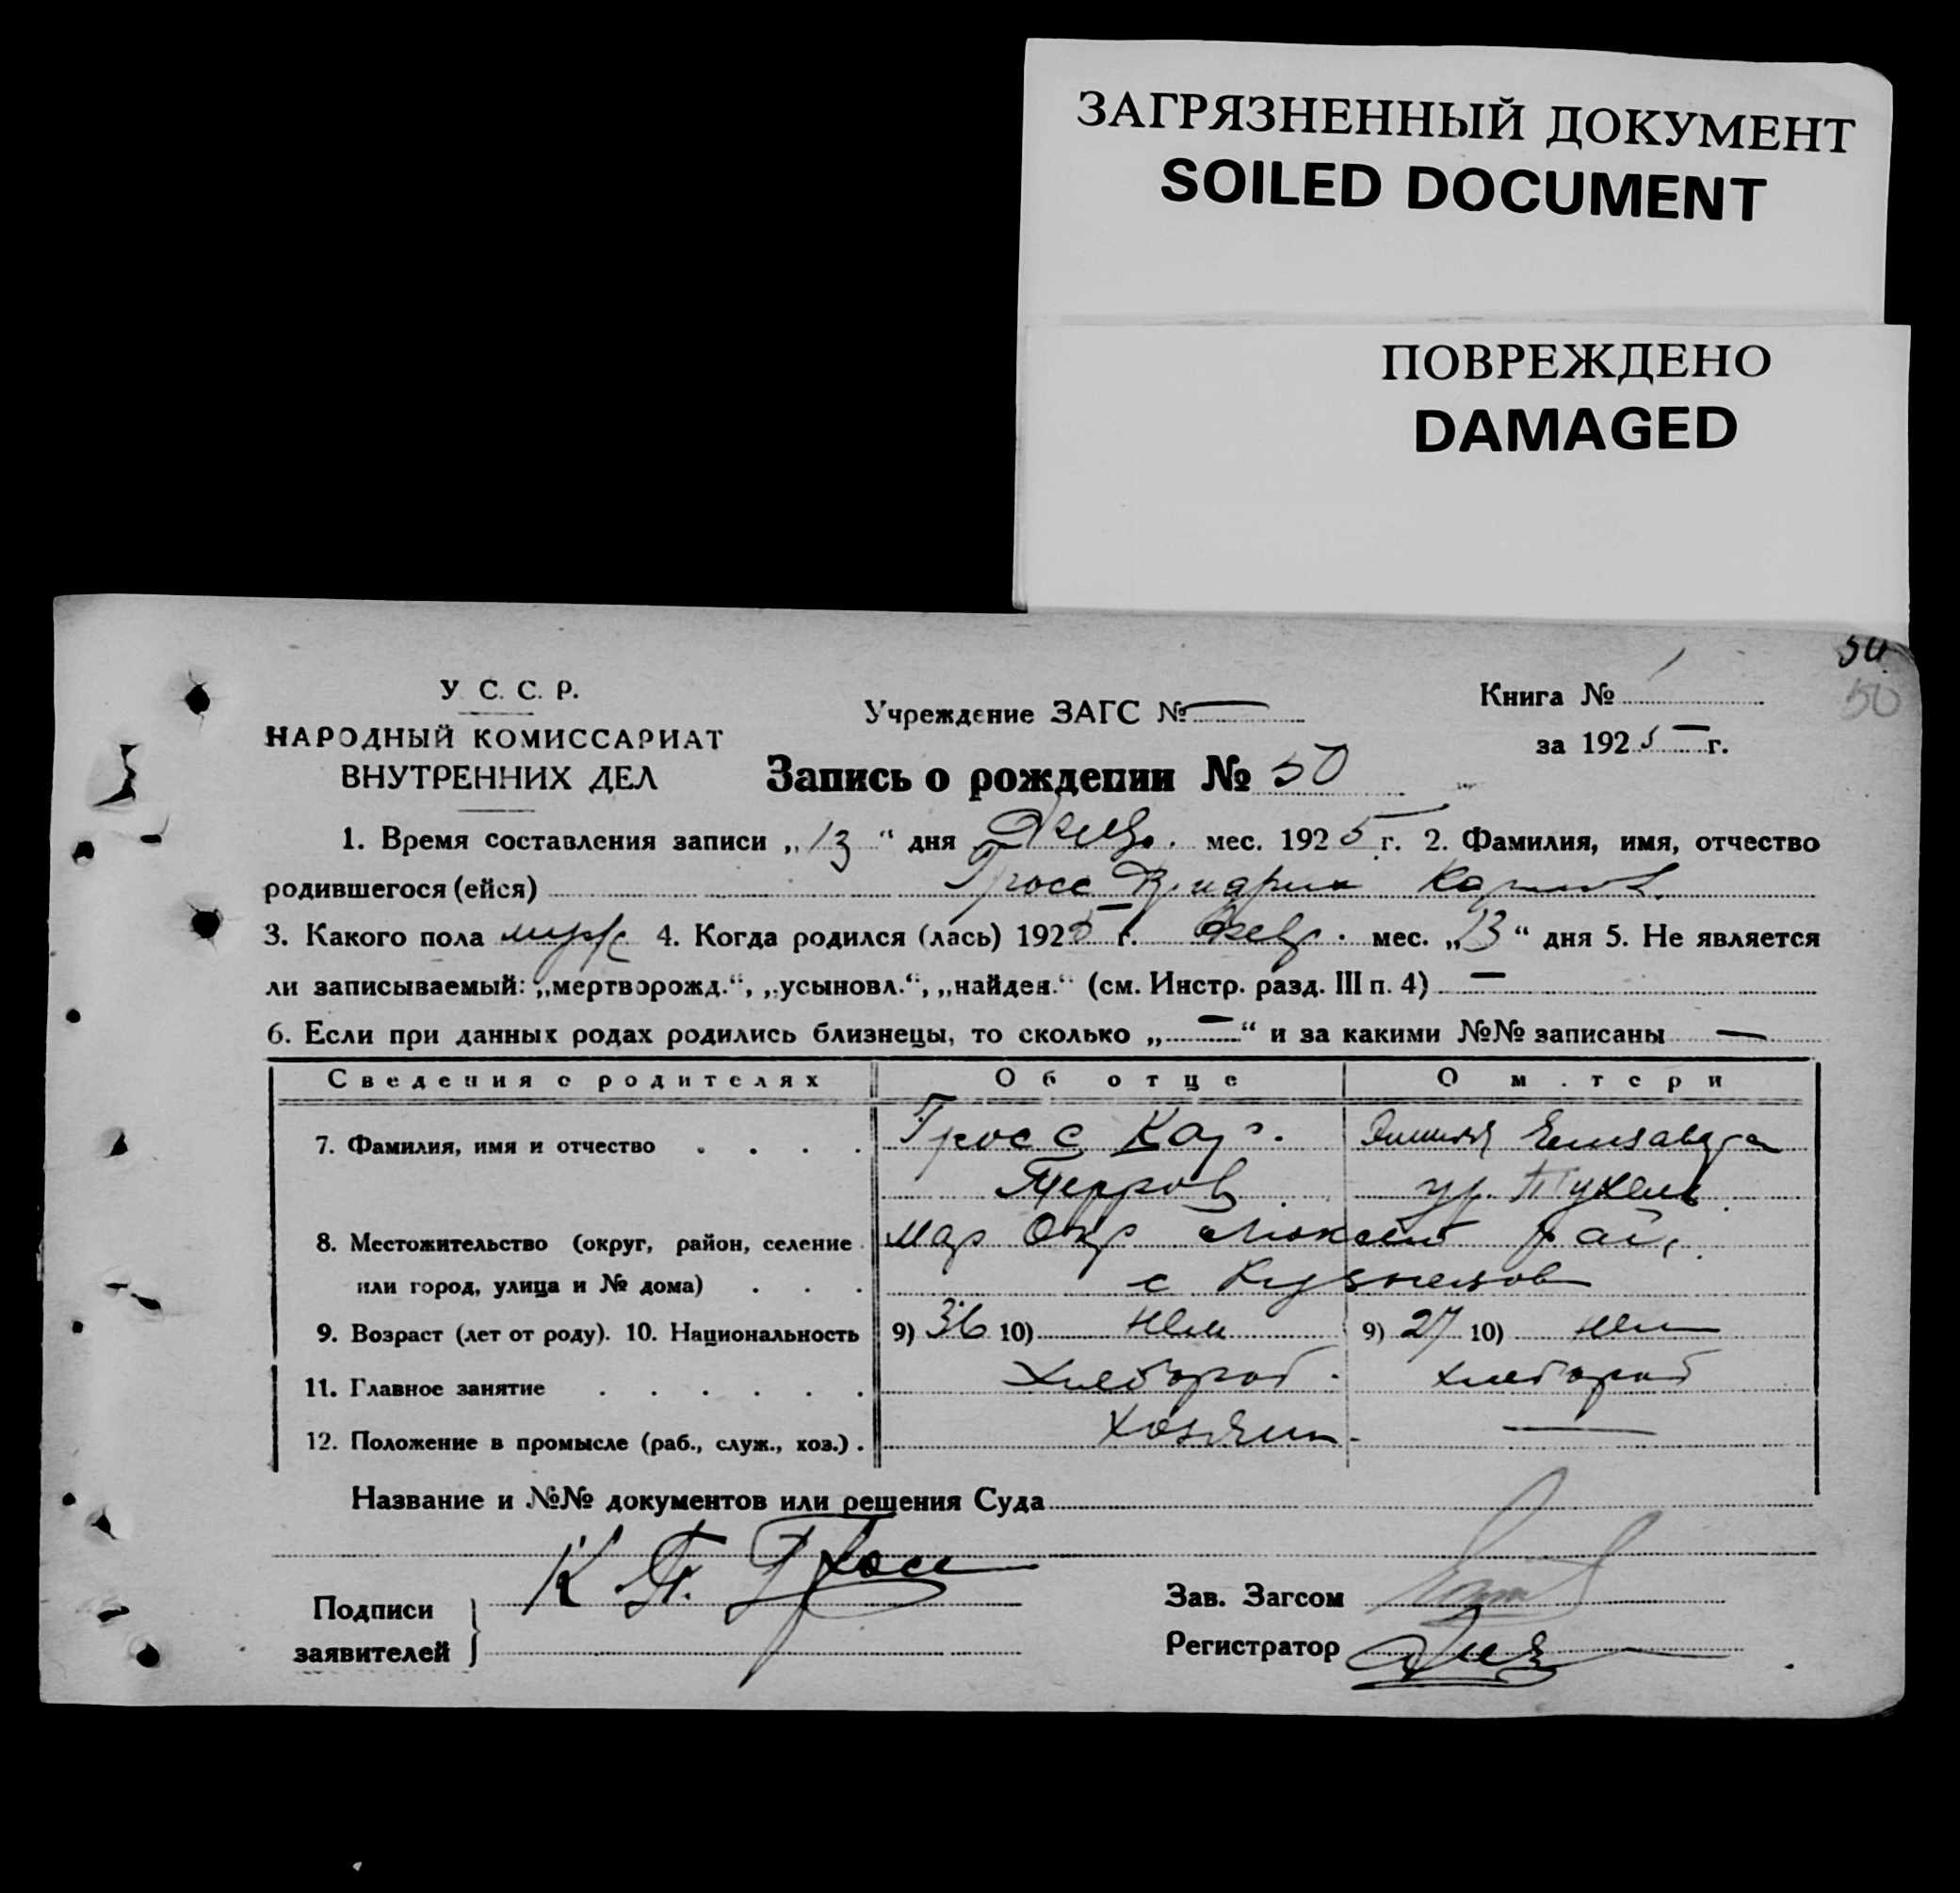 ЗАГРЯЗНЕННЫЙ ДОКУМЕНТ
SOILED DOCUMENT
ПОВРЕЖДЕНО
DAMAGED
50
50
У. С. С. Р.
НАРОДНЫЙ КОМИССАРИАТ
ВНУТРЕННИХ ДЕЛ
Учреждение ЗАГС № —
Книга № 1
за 1925 г.
Запись о рождении № 50
1. Время составления записи „13“ дня мес. 1925 г. 2. Фамилия, имя, отчество
родившегося (ейся) Гросс Карлов.
3. Какого пола муж 4. Когда родился (лась) 1925 г. мес. „13“ дня 5. Не является
ли записываемый: „мертворожд.“, „усыновл.“, „найден.“ (см. Инстр. разд. III п. 4) —
6. Если при данных родах родились близнецы, то сколько „—“ и за какими №№ записаны —
Сведения о родителях Об отце О матери
7. Фамилия, имя и отчество . . . . Гросс Кар. Елизавета
ур.
8. Местожительство (округ, район, селение Мар Окр рай.
или город, улица и № дома) . . . с
9. Возраст (лет от роду). 10. Национальность 9) 36 10) нем 9) 27 10) нем
11. Главное занятие . . . . . . хлебороб. хлебороб
12. Положение в промысле (раб., служ., хоз.) . хозяин. —
Название и №№ документов или решения Суда
К. П. Гросс
Подписи
заявителей
Зав. Загсом
Регистратор